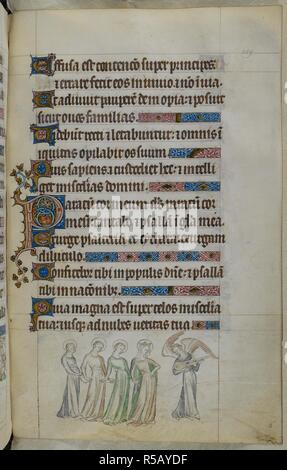 Effusa est contencio super principes:
et errare fecit eos in inuio et nō ī uia.
Et adiuuit pauperem de inopia: et posuit
sicut oues familias.
Uidebunt recti et letabuntur: et omnis i
niquitas opilabit os suum.
Quis sapiens et custodiet hec: et intelli
get mīas domini.
Paratum cor meum deus paratum cor
meum: et psallā ī glā mea
Exurge psalterium et cithara exurgam
diliculo.
Confitebor tibi in populis dñe: et psallā
tibi in nacōnibȝ.
Quia magna est super celos mīa
tua: et usqȝ ad nubes ueritas tua.
alamy
R5AYDF